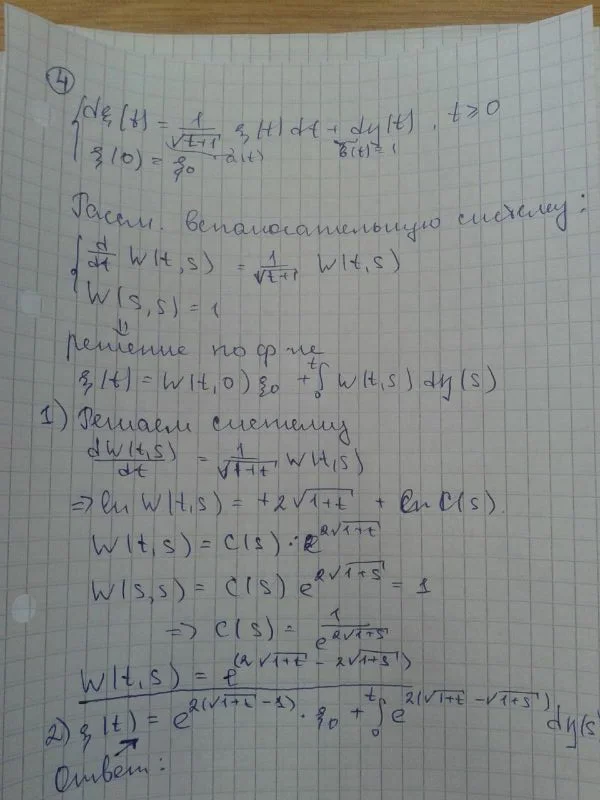 ④
dξ(t) = 1/√(t+1) ξ(t) dt + dη(t), t ≥ 0
ξ(0) = ξ₀ a(t) b(t) = 1
Рассм. вспомогательную систему:
d/dt W(t,s) = 1/√(t+1) W(t,s)
W(s,s) = 1
⇓
решение по ф-ле
ξ(t) = W(t,0) ξ₀ + ∫₀ᵗ W(t,s) dη(s)
1) Решаем систему
dW(t,s)/dt = 1/√(1+t) W(t,s)
⇒ ln W(t,s) = +2√(1+t) + ln C(s).
W(t,s) = C(s) · e^(2√(1+t))
W(s,s) = C(s) e^(2√(1+s)) = 1
⇒ C(s) = 1/e^(2√(1+s))
W(t,s) = e^(2√(1+t) - 2√(1+s))
2) ξ(t) = e^(2(√(1+t) - 1)) · ξ₀ + ∫₀ᵗ e^(2(√(1+t) - √(1+s))) dη(s)
Ответ: